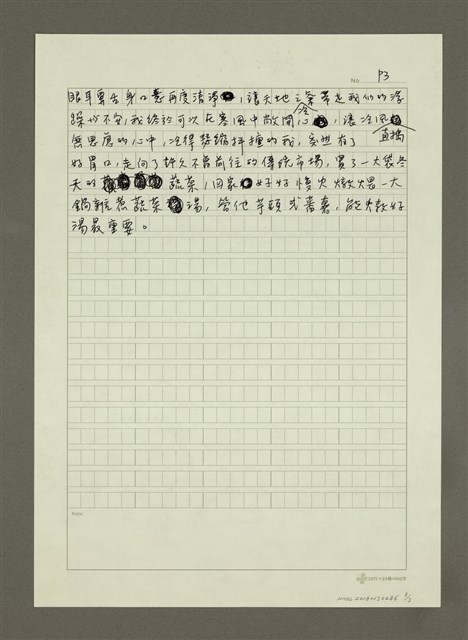 No. P3
眼耳鼻舌身口意再度清淨，讓天地之氣帶走我們的浮
躁與不安，我終於可以在寒風中敞開心，讓冷風直搗
無思慮的心中，冷得勞縮抖擻的我，突然有了
好胃口，走向了許久不曾前往的傳統市場，買了一大袋冬
天的蔬菜，回家好好慢火燉煨一大
鍋雜煮蔬菜湯，管他芋頭或番薯，能燉好
湯最重要。
Note